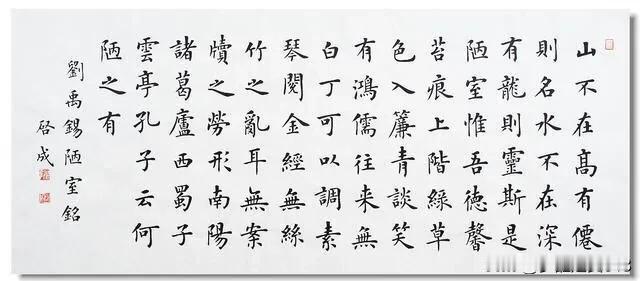 山不在髙有僊
則名水不在深
有龍則靈斯是
陋室惟吾徳馨
苔痕上階緑草
色入簾青談笑
有鴻儒往来無
白丁可以調素
琴閱金經無絲
竹之亂耳無案
牘之勞形南陽
諸葛廬西蜀子
雲亭孔子云何
陋之有
劉禹錫陋室銘
啓成